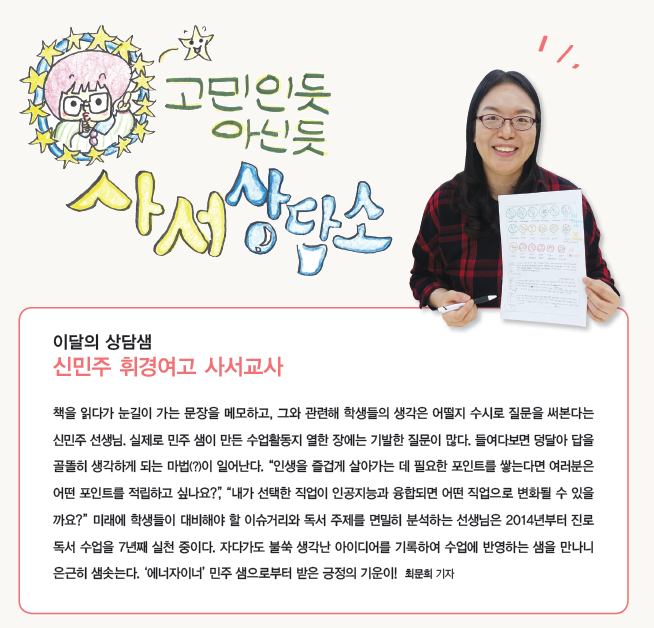 고민인듯
아닌듯
사서상담소
이달의 상담샘
신민주 휘경여고 사서교사
책을 읽다가 눈길이 가는 문장을 메모하고, 그와 관련해 학생들의 생각은 어떨지 수시로 질문을 써본다는
신민주 선생님. 실제로 민주 샘이 만든 수업활동지 열한 장에는 기발한 질문이 많다. 들여다보면 덩달아 답을
골똘히 생각하게 되는 마법(?)이 일어난다. “인생을 즐겁게 살아가는 데 필요한 포인트를 쌓는다면 여러분은
어떤 포인트를 적립하고 싶나요?”, “내가 선택한 직업이 인공지능과 융합되면 어떤 직업으로 변화될 수 있을
까요?” 미래에 학생들이 대비해야 할 이슈거리와 독서 주제를 면밀히 분석하는 선생님은 2014년부터 진로
독서 수업을 7년째 실천 중이다. 자다가도 불쑥 생각난 아이디어를 기록하여 수업에 반영하는 샘을 만나니
은근히 샘솟는다. ‘에너자이너’ 민주 샘으로부터 받은 긍정의 기운이! 최문희 기자